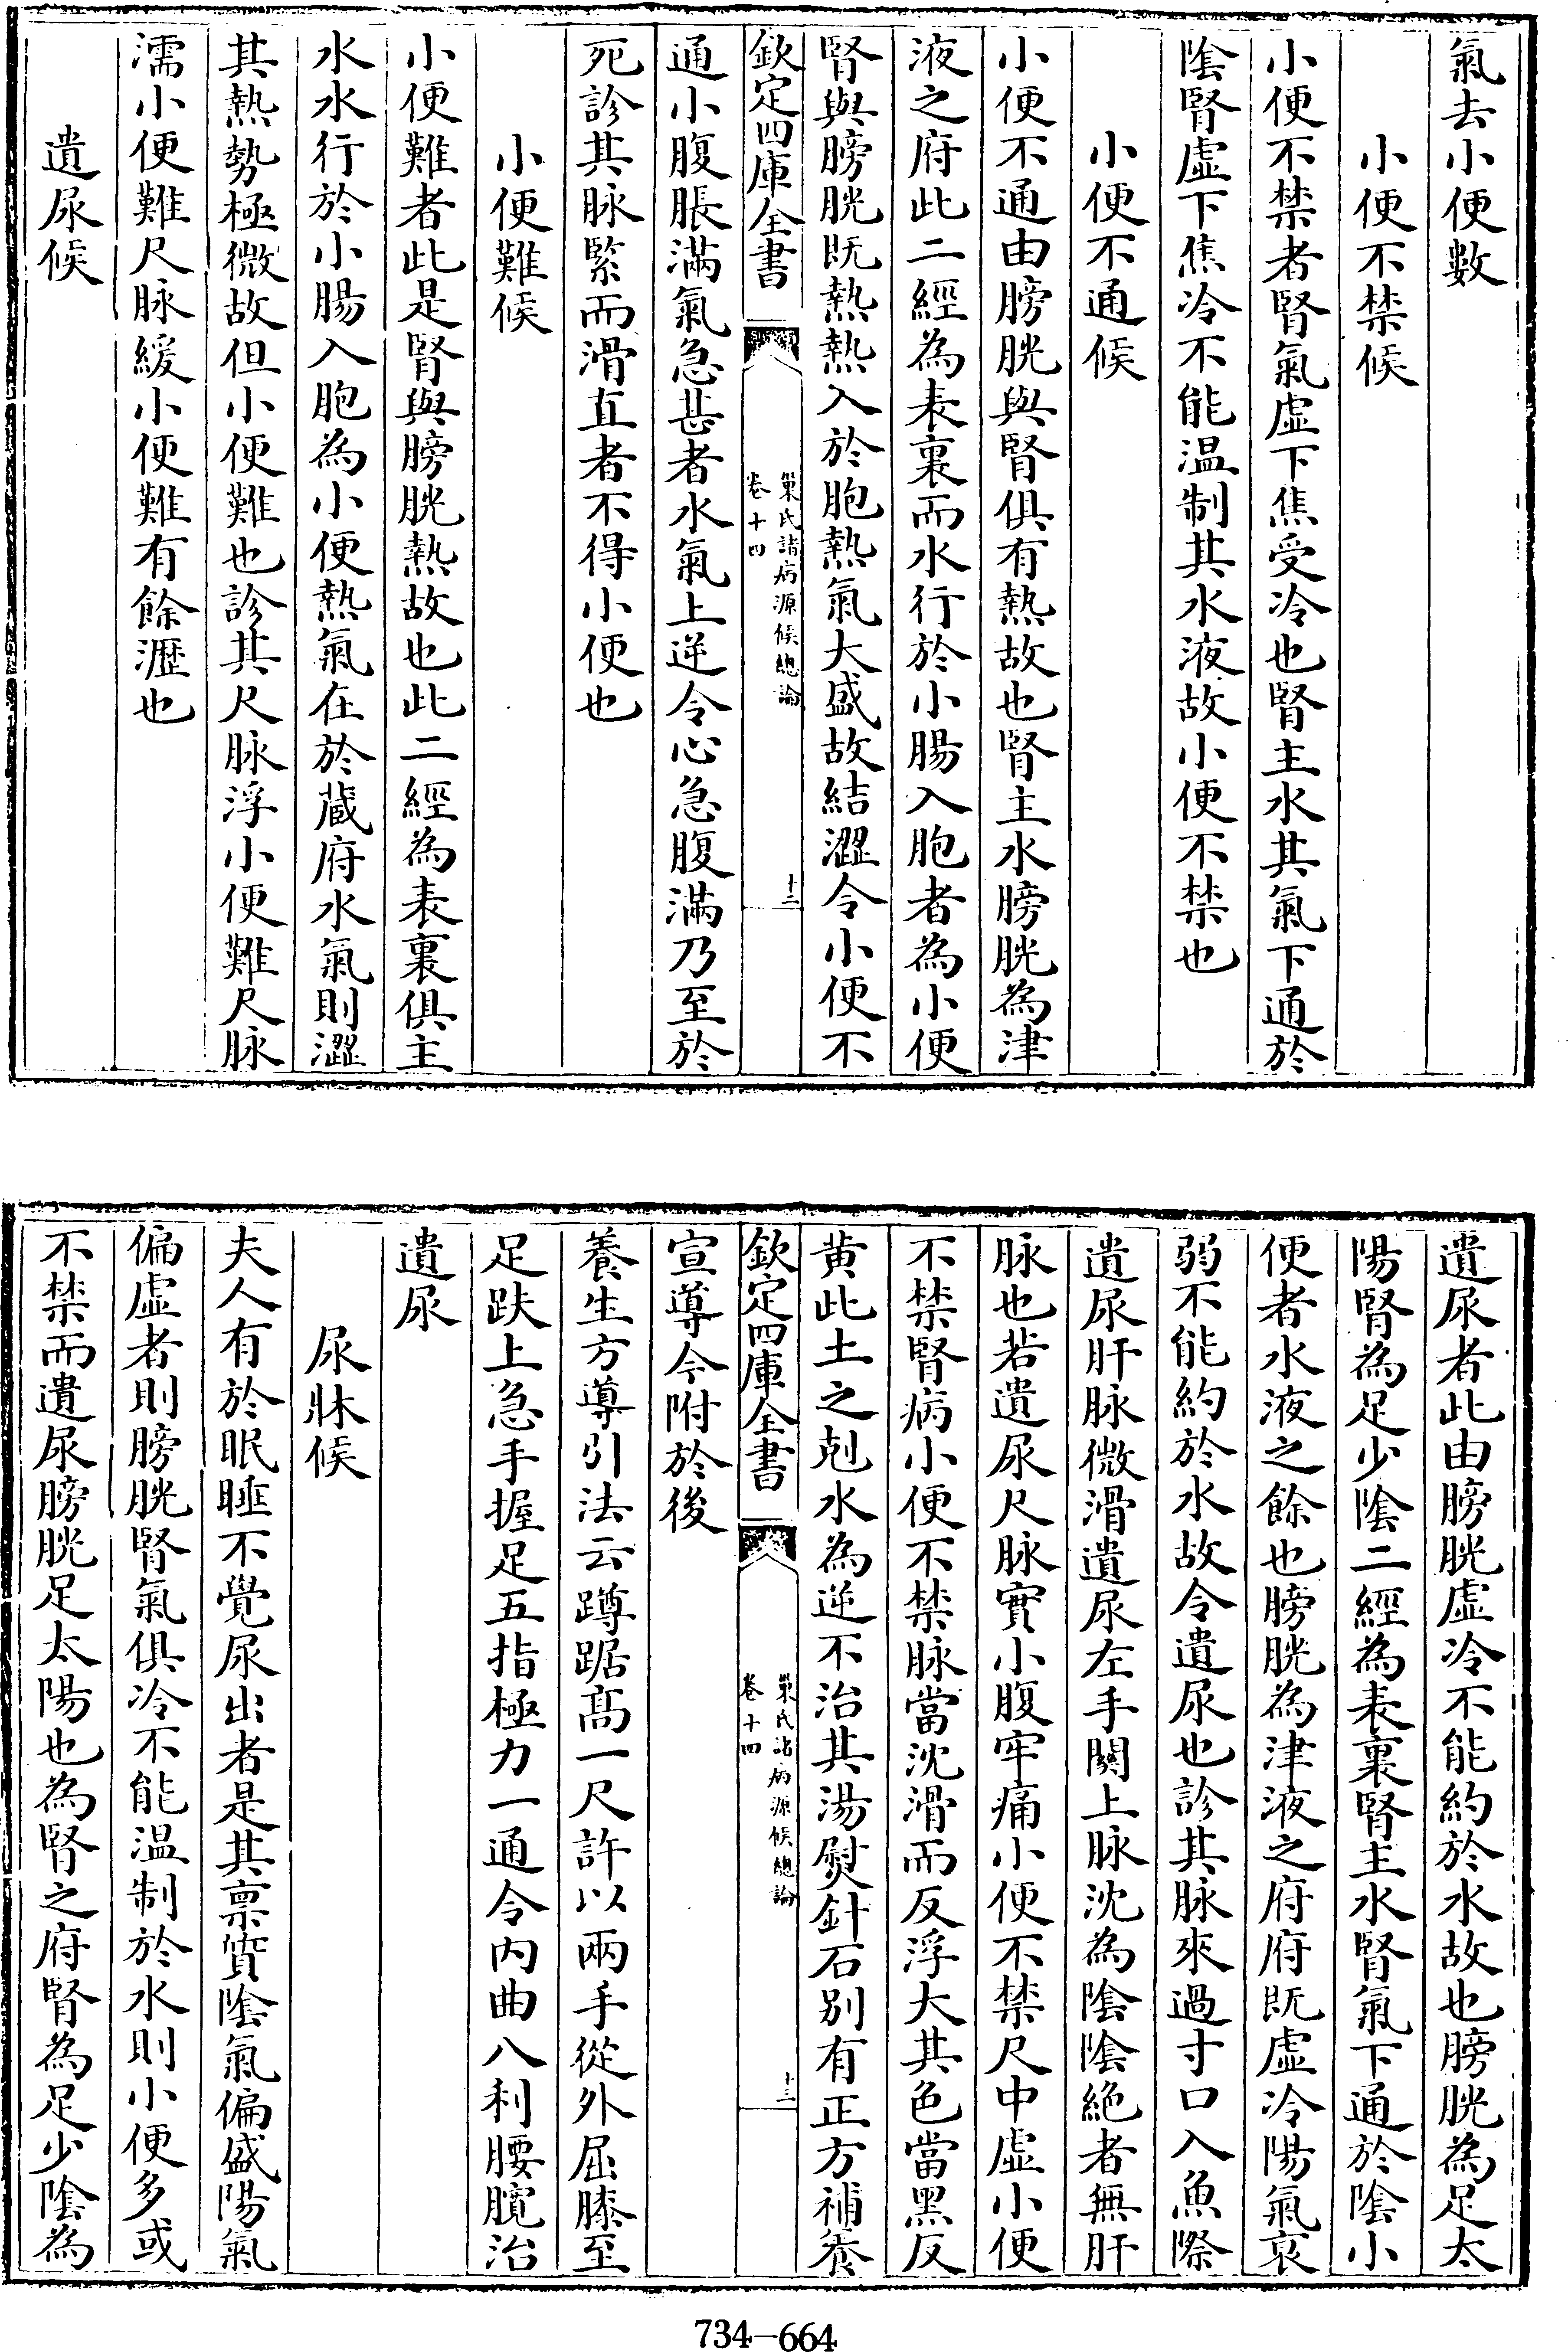 氣去小便數
小便不禁候
小便不禁者腎氣虛下焦受冷也腎主水其氣下通於
陰腎虛下焦冷不能温制其水液故小便不禁也
小便不通候
小便不通由膀胱與腎俱有熱故也腎主水膀胱為津
液之府此二經為表裏而水行於小腸入胞者為小便
腎與膀胱既熱熱入於胞熱氣大盛故結澀令小便不
欽定四庫全書
巢氏諸病源候總論
卷十四
十二
通小腹脹滿氣急甚者水氣上逆令心急腹滿乃至於
死診其脉緊而滑直者不得小便也
小便難候
小便難者此是腎與膀胱熱故也此二經為表裏俱主
水水行於小腸入胞為小便熱氣在於蔵府水氣則澀
其熱勢極微故但小便難也診其尺脉浮小便難尺脉
濡小便難尺脉緩小便難有餘瀝也
遺尿候
遺尿者此由膀胱虛冷不能約於水故也膀胱為足太
陽腎為足少陰二經為表裏腎主水腎氣下通於陰小
便者水液之餘也膀胱為津液之府府既虛冷陽氣衰
弱不能約於水故令遺尿也診其脉來過寸口入魚際
遺尿肝脉微滑遺尿左手關上脉沈為陰陰絶者無肝
脉也若遺尿尺脉實小腹牢痛小便不禁尺中虛小便
不禁腎病小便不禁脉當沈滑而反浮大其色當黑反
黄此土之剋水為逆不治其湯熨針石别有正方補養
欽定四庫全書
巢氏諸病源候總論
卷十四
十三
宣導今附於後
養生方導引法云蹲踞髙一尺許以兩手從外屈膝至
足趺上急手握足五指極力一通令内曲入利腰髖治
遺尿
尿牀候
夫人有於眠睡不覺尿出者是其禀質陰氣偏盛陽氣
偏虛者則膀胱腎氣俱冷不能温制於水則小便多或
不禁而遺尿膀胱足太陽也為腎之府腎為足少陰為
734-664